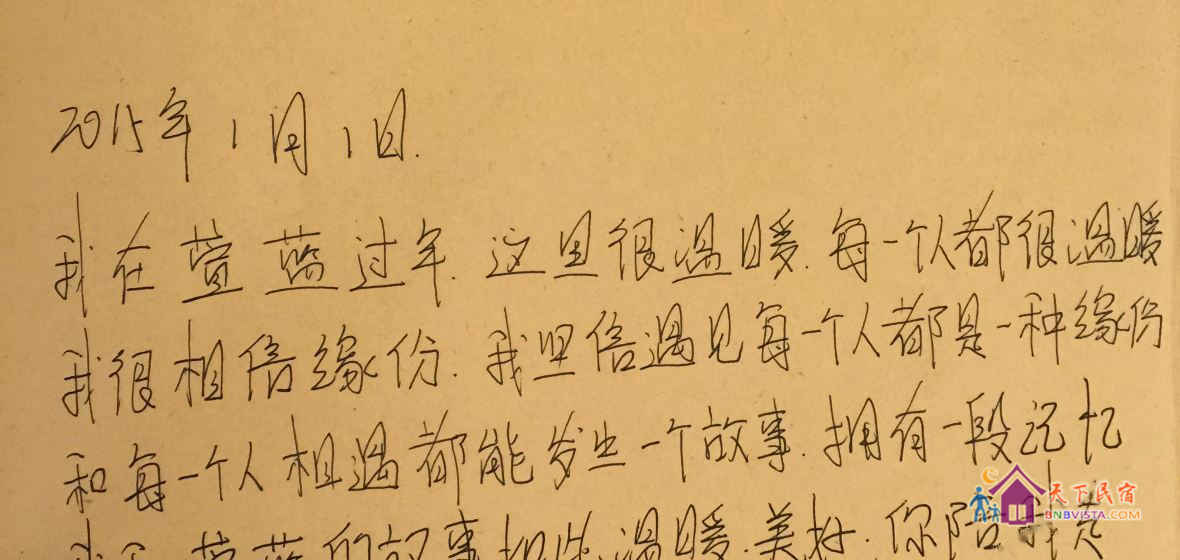 2015年1月1日.
我在萱蓝过年.这里很温暖.每一个人都很温暖
我很相信缘份.我坚信遇见每一个人都是一种缘份
和每一个人相遇都能发生一个故事.拥有一段记忆
萱蓝的故事相当温暖.美好.你陪我走
天下民宿
BNBVISTA.COM